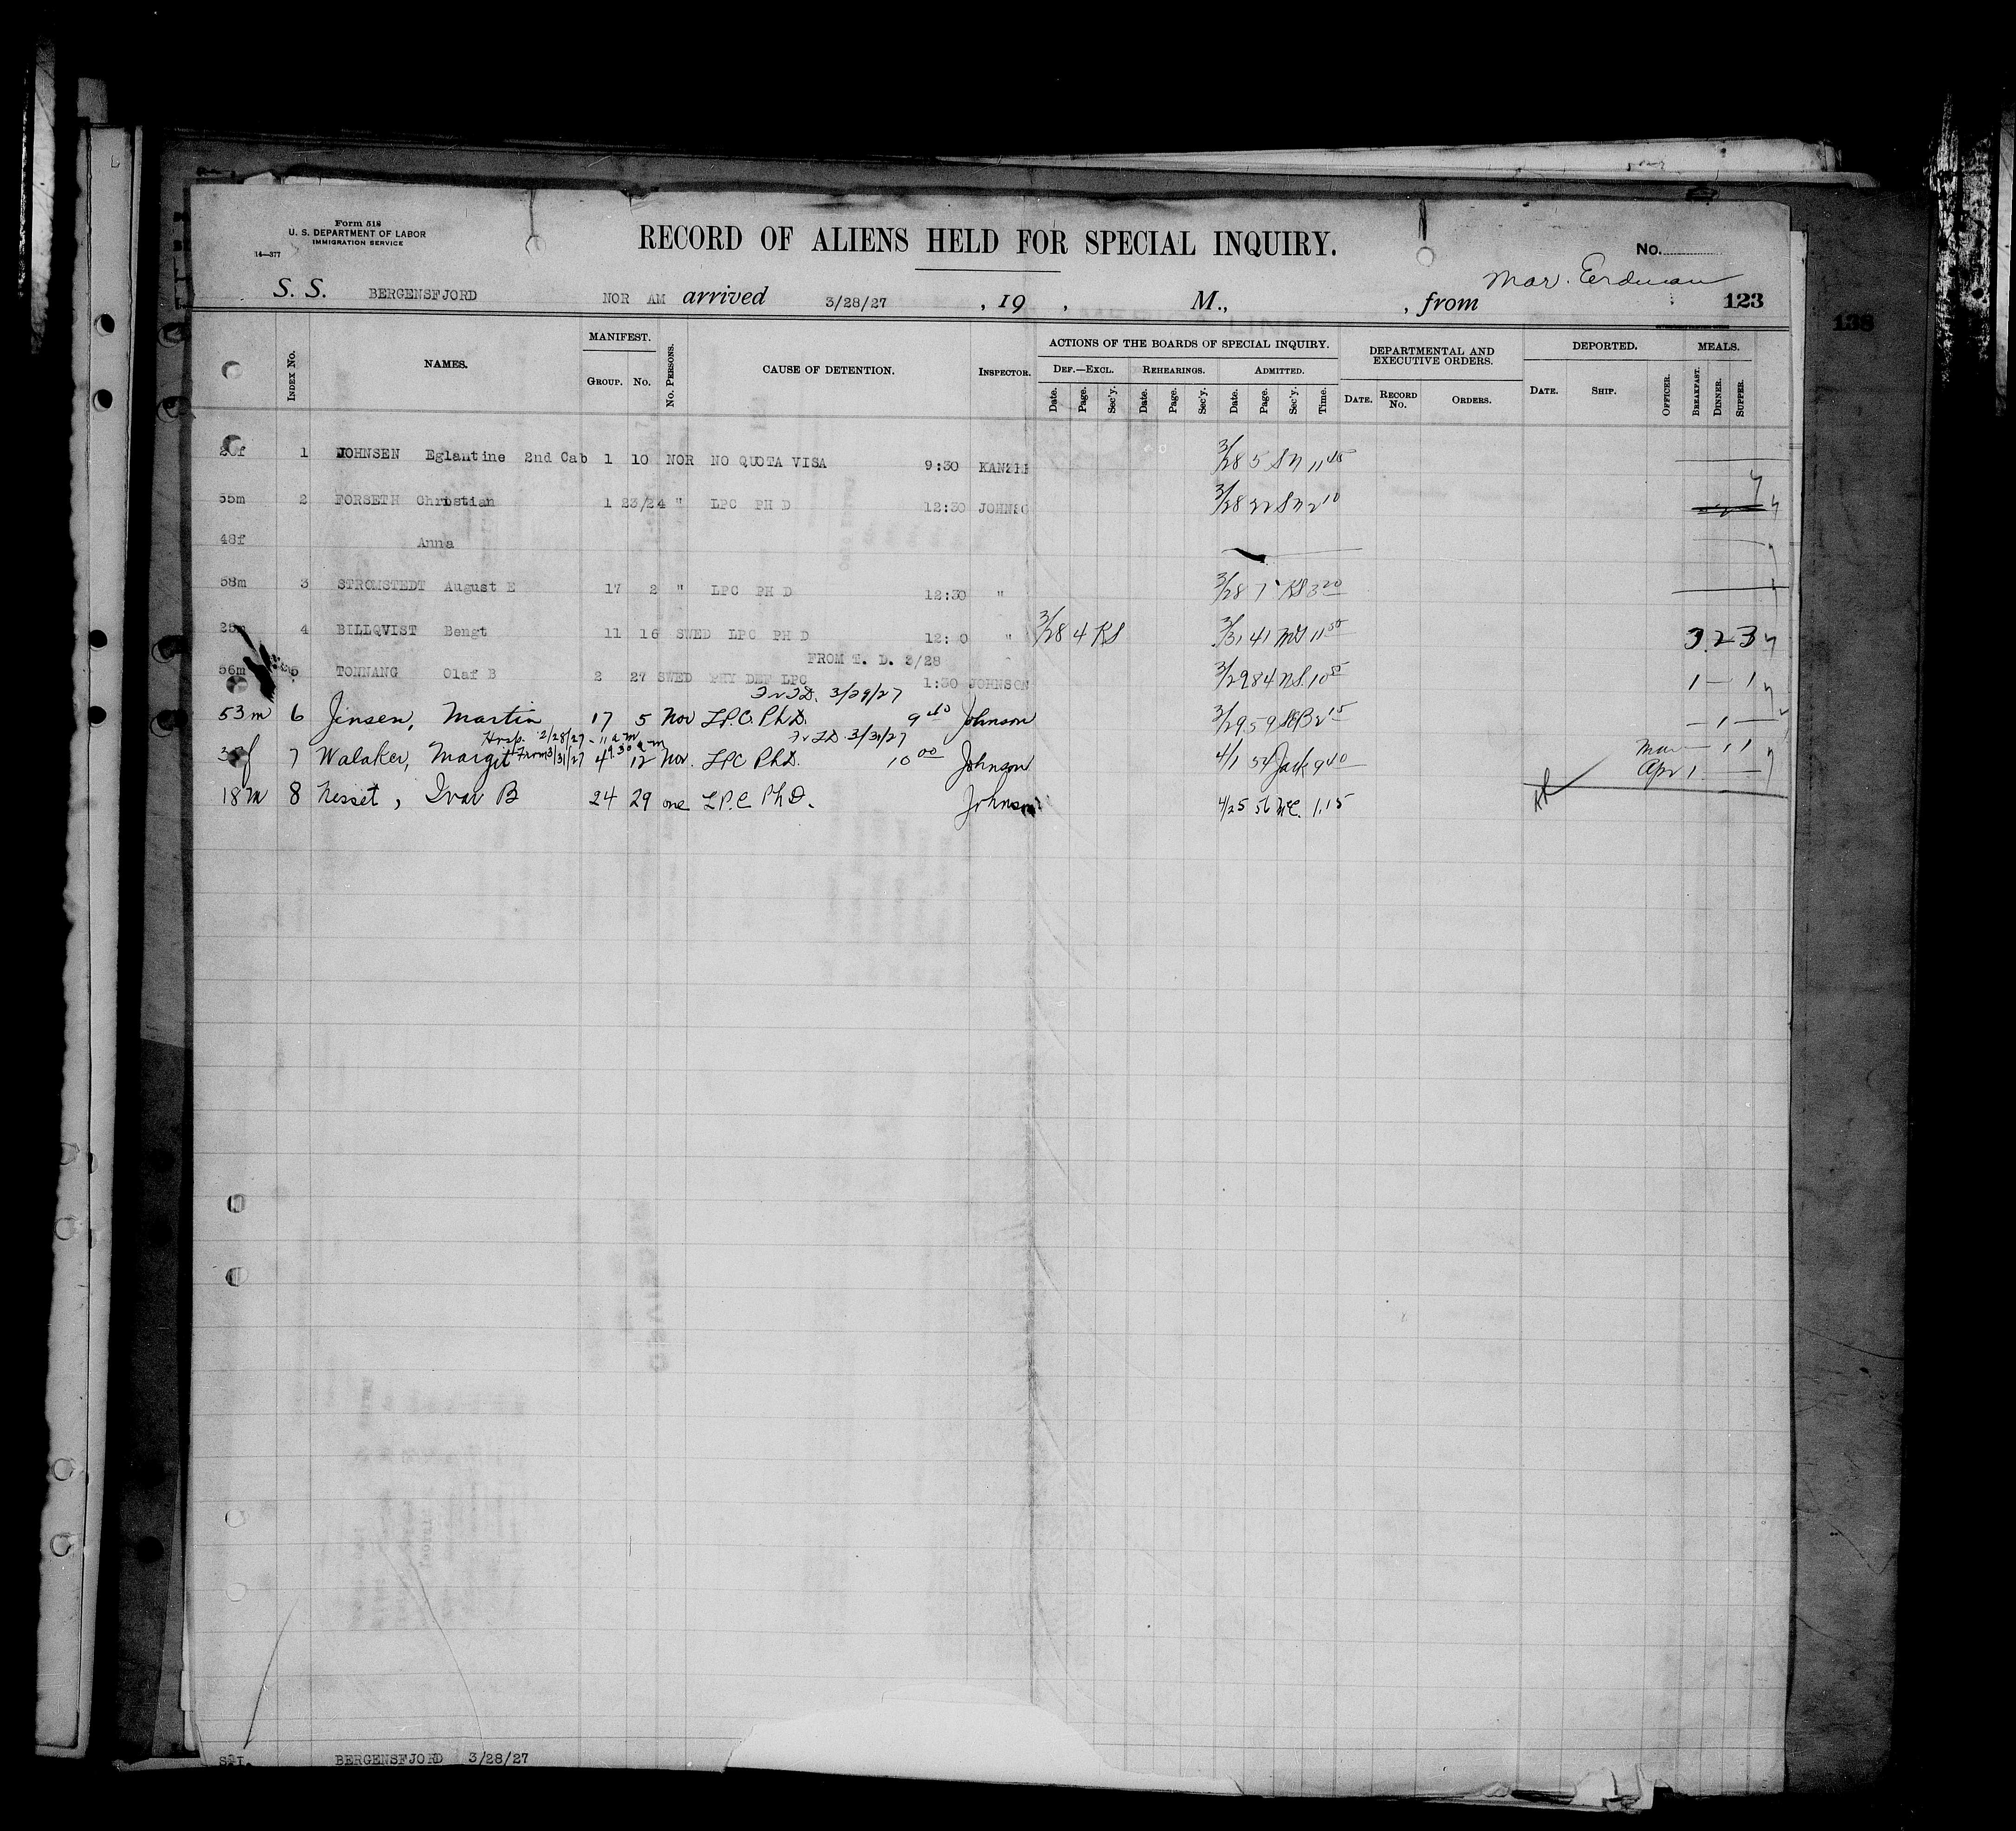 Form 518
U. S. DEPARTMENT OF LABOR
IMMIGRATION SERVICE
14—377
RECORD OF ALIENS HELD FOR SPECIAL INQUIRY.
No.
Mar. Erdman
S. S. BERGENSFJORD NOR AM arrived 3/28/27 , 19 , M., , from 123
138
INDEX No. NAMES. MANIFEST. GROUP. No. No. PERSONS. CAUSE OF DETENTION. INSPECTOR. ACTIONS OF THE BOARDS OF SPECIAL INQUIRY. DEPARTMENTAL AND EXECUTIVE ORDERS. DEPORTED. MEALS.
DEF.—EXCL. REHEARINGS. ADMITTED.
Date. Page. Sec'y. Date. Page. Sec'y. Date. Page. Sec'y. Time. DATE. RECORD No. ORDERS. DATE. SHIP. OFFICER. BREAKFAST. DINNER. SUPPER.
1 JOHNSEN Eglantine 2nd Cab 1 10 NOR NO QUOTA VISA 9:30 3/28 5 SN 11 45
55m 2 FORSETH Christian 1 23/24 " LPC PH D 12:30 3/28 22 SN 2 10
48f Anna
58m 3 STROMSTEDT August E 17 2 " LPC PH D 12:30 " 3/28 7 KS 3 20
4 BILLQVIST Bengt 11 16 SWED LPC PH D " 3/28 4 KS 3/31 41 11 50 3 2 3
FROM T. D. 3/28
56m 5 TONNANG Olaf B 2 27 SWED PHY DEF LPC 1:30 JOHNSON 3/29 84 NS. 10 1 — 1
Fr T.D. 3/29/27
53m 6 Jensen, Martin 17 5 Nor L.P.C. Ph.D. 9 40 Johnson 3/29 59 2 15 — 1 —
Hosp. 2/28/27 - 11 am Fr T.D. 3/31/27
7 Walaker, Margit From 3/31/27 9.30 am 4 12 Nor. LPC PhD. 10 00 Johnson 4/1 54 Jack 9 40 Mar — 1 1
Apr 1 — —
18m 8 Nesset, Ivar B 24 29 one L.P.C Ph.D. Johnson 4/25 56 1.15
S.I. BERGENSFJORD 3/28/27